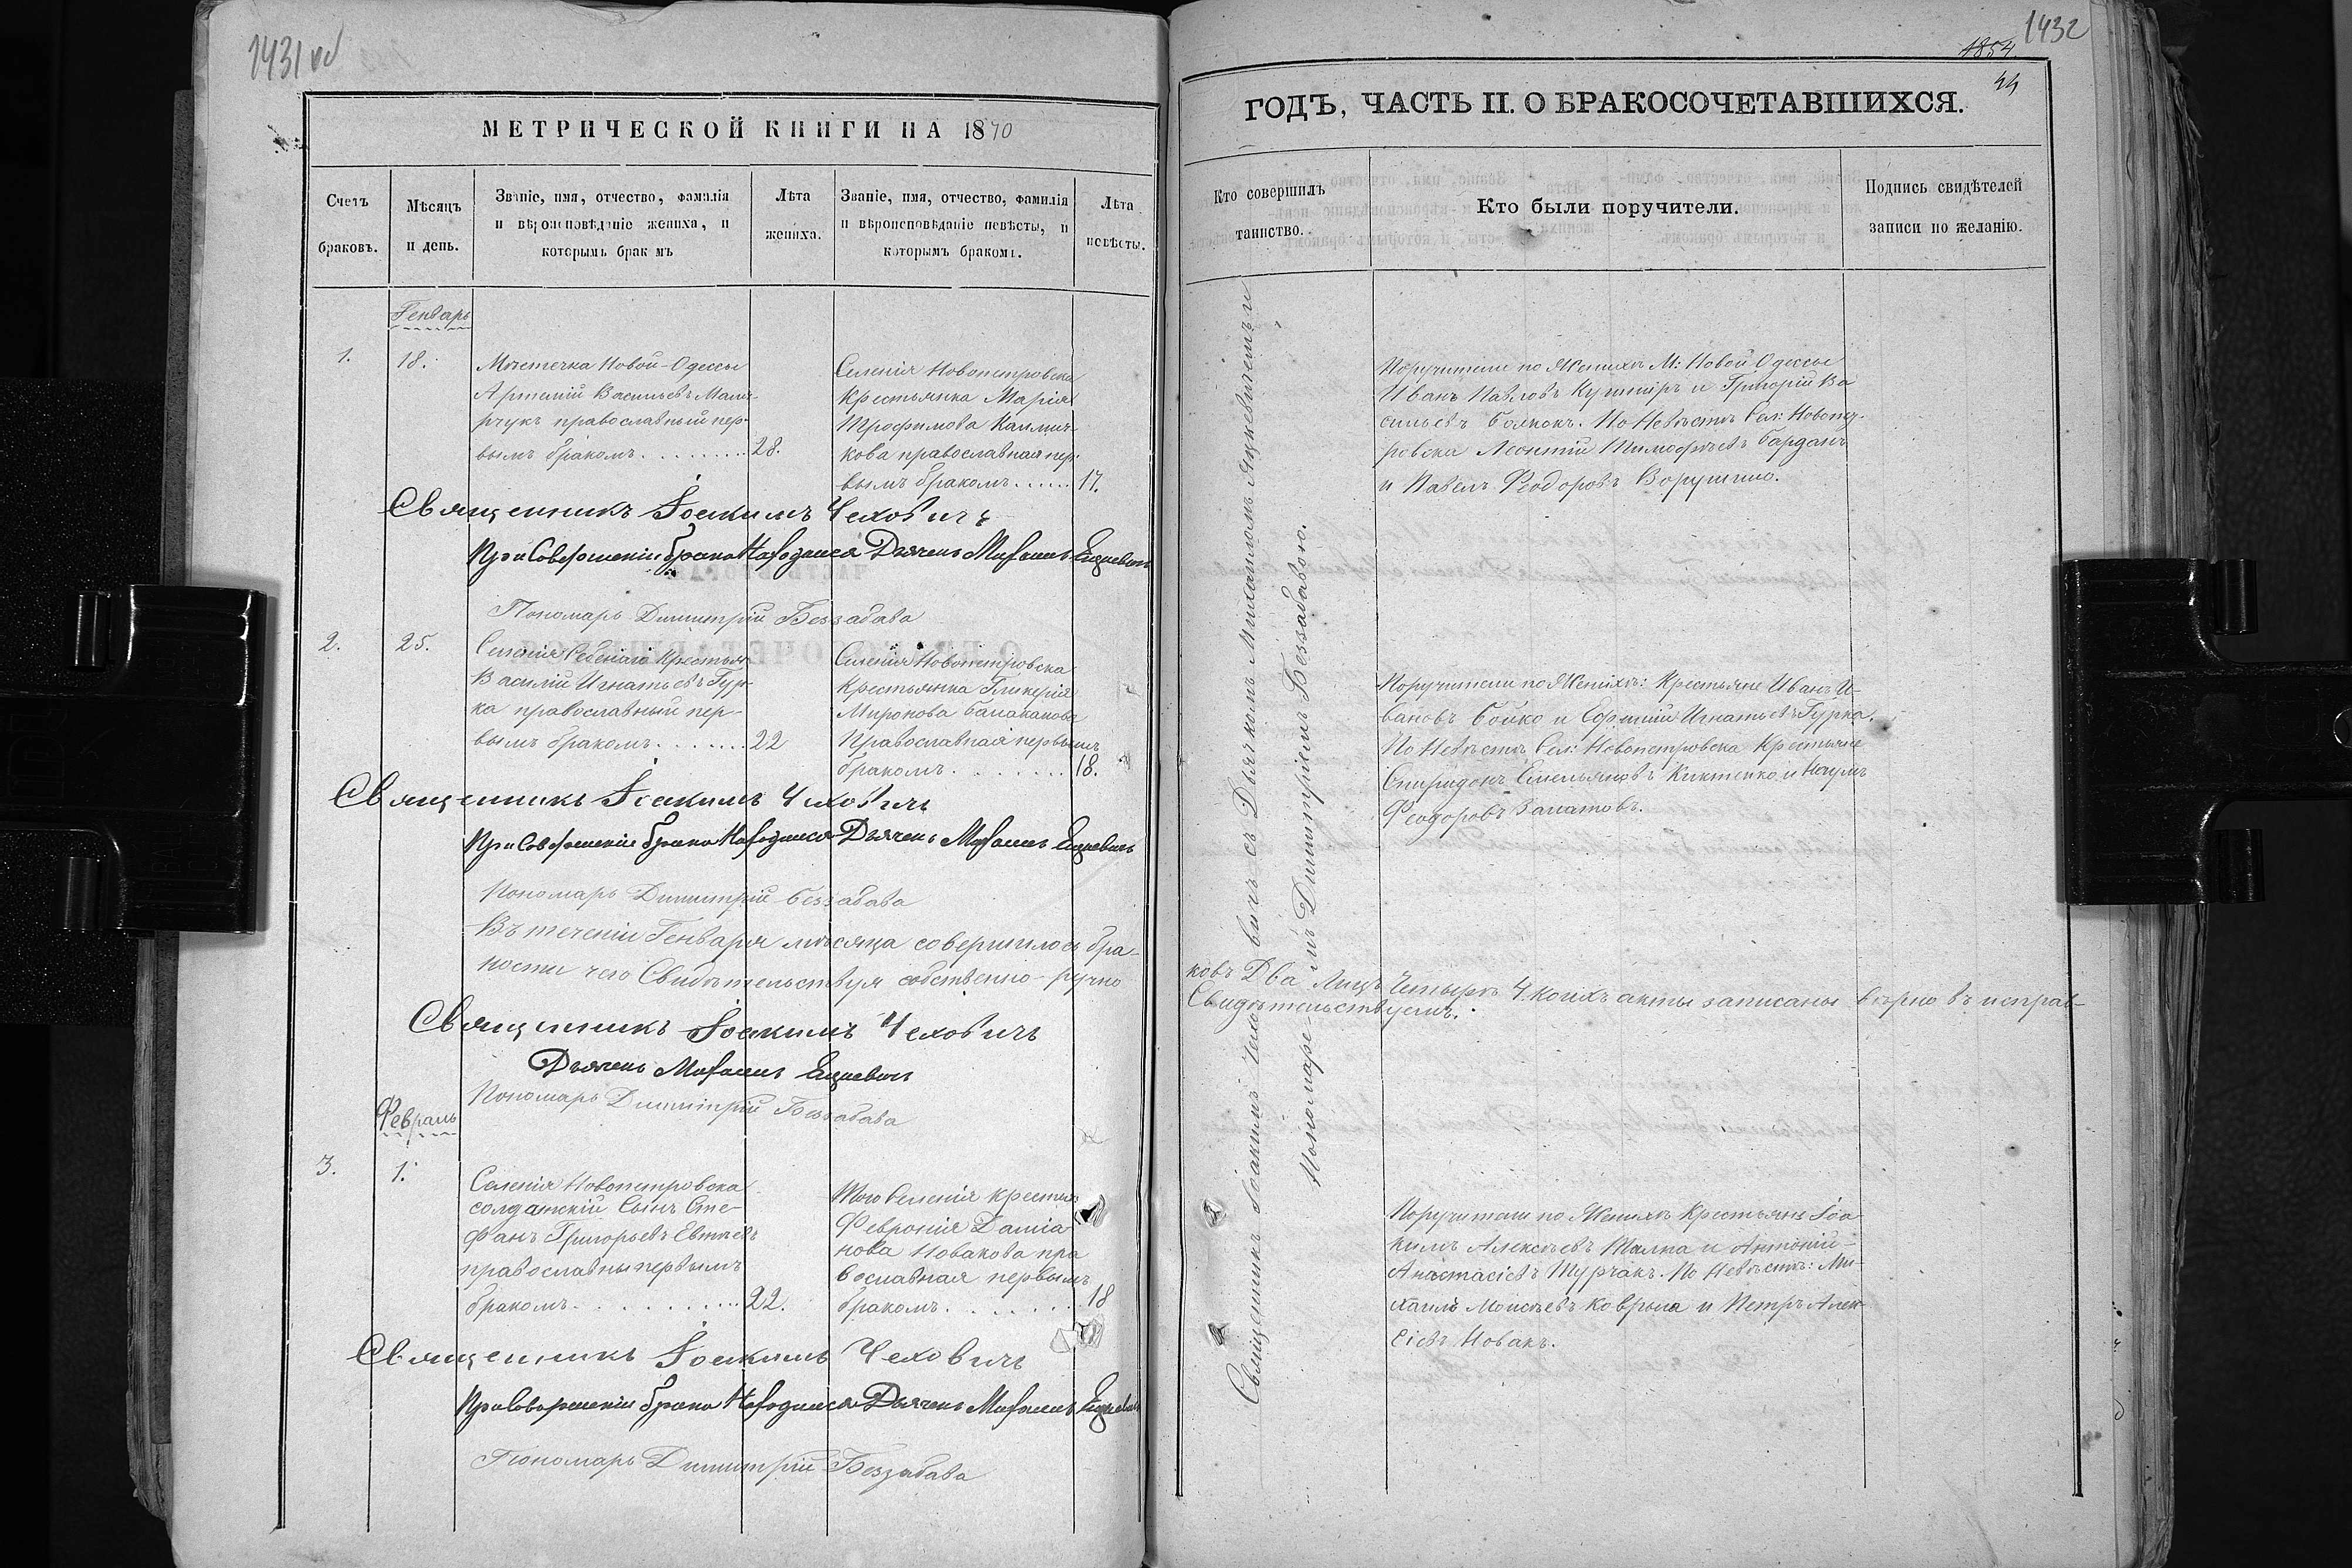 1431 об
МЕТРИЧЕСКОЙ КНИГИ НА 1870
Счетъ браковъ.
Мѣсяцъ и день.
Званіе, имя, отчество, фамилія и вѣроисповѣданіе жениха, и которымъ бракомъ
Лѣта жениха.
Званіе, имя, отчество, фамилія и вѣроисповѣданіе невѣсты, и которымъ бракомъ.
Лѣта невѣсты.
Генварь
1.
18.
Мѣстечка Новой-Одессы
Артемій Васильевъ
рчукъ православный пер-
вымъ бракомъ
28.
Селенія Новопетровска
Крестьянка Марія
Трофимова
кова православная пер-
вымъ бракомъ
17.
Священникъ Іоакимъ Чеховичъ
При Совершеніи брака Находился Дьячекъ Михаилъ
Пономарь Димитрій Беззабава
2.
25.
Селенія Крестьян
Василій Игнатьевъ Гур-
ка православный пер-
вымъ бракомъ
22
Селенія Новопетровска
Крестьянка Гликерія
Миронова Балаканова
Православная первымъ
бракомъ
18.
Священникъ Іоакимъ Чеховичъ
При Совершеніи брака Находился Дьячекъ Михаилъ
Пономарь Димитрій Беззабава
Въ теченіи Генваря мѣсяца совершилось бра-
ности чего Свидѣтельствуя собственно-ручно
Священникъ Іоакимъ Чеховичъ
Дьячекъ Михаилъ
Пономарь Димитрій Беззабава
Февраль
3.
1.
Селенія Новопетровска
солдатскій Сынъ Сте-
фанъ Григорьевъ Евтѣевъ
православны первымъ
бракомъ
22.
Того Селенія крестьян
Февронія Даміа
нова Новакова пра
вославная первымъ
бракомъ
18
Священникъ Іоакимъ Чеховичъ
При Совершеніи брака Находился Дьячекъ Михаилъ
Пономарь Димитрій Беззабава
1432
1854
44
ГОДЪ, ЧАСТЬ II. О БРАКОСОЧЕТАВШИХСЯ.
Кто совершилъ таинство.
Кто были поручители.
Подпись свидѣтелей записи по желанію.
Священникъ Іоакимъ Чеховичъ съ Дьячкомъ Михаиломъ Яцкевичемъ и
Пономаремъ Димитріемъ Беззабавою.
Поручители по Женихѣ М: Новой Одессы
Иванъ Павловъ Кушниръ и Григорій Ва
сильевъ По Невѣстѣ Сел: Новопет-
ровска Леонтій Тимофѣевъ Бардакъ
и Павелъ Феодоровъ
Поручители по Женихѣ: Крестьяне Иванъ И-
вановъ Бойко и Игнатьевъ Гурка.
По Невѣстѣ Сел: Новопетровска Крестьяне
Спиридонъ Емельяновъ Кихтенко и Наумъ
Феодоровъ
ковъ Два Лицъ Четыре 4. коихъ акты записаны вѣрно въ исправ-
Свидѣтельствуемъ.
Поручители по Женихѣ Крестьяне Іоа
кимъ Алексѣевъ и Антоній
Анастасіевъ Турчакъ. По Невѣстѣ: Ми-
хаилъ Моисѣевъ и Петръ Алек
сіевъ Новакъ.